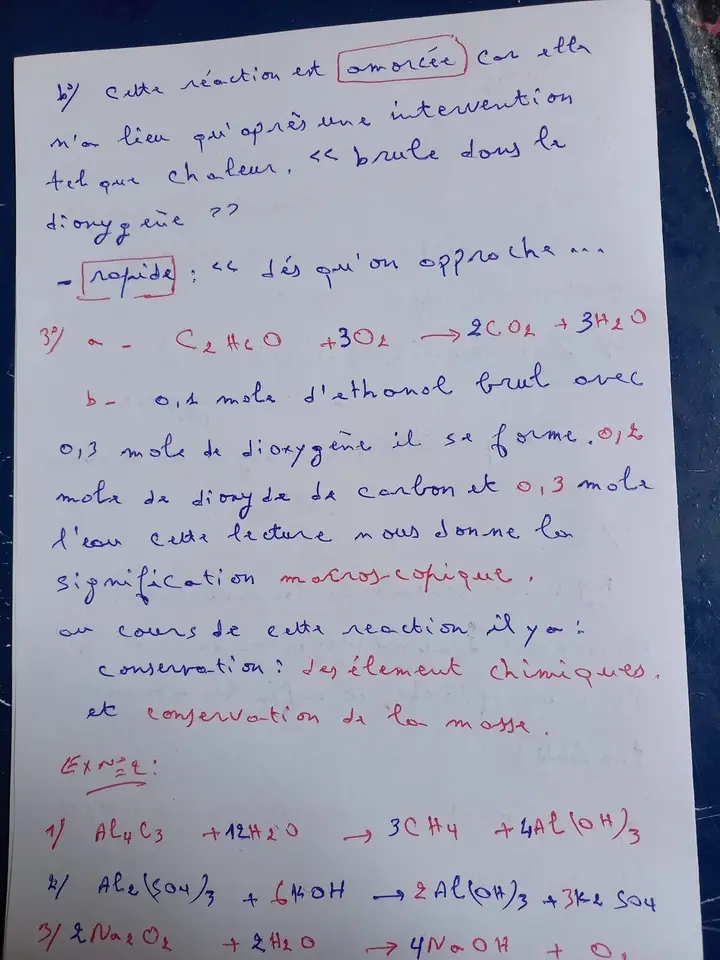 b°/ Cette réaction est amorcée car elle
n'a lieu qu'après une intervention
tel que chaleur. << brule dans le
dioxygène >>
- rapide : << dés qu'on approche ...
3°/ a - C2H6O + 3O2 → 2CO2 + 3H2O
b- 0,1 mole d'ethanol brul avec
0,3 mole de dioxygène il se forme. 0,2
mole de dioxyde de carbon et 0,3 mole
l'eau cette lecture nous donne la
signification macroscopique.
au cours de cette reaction il ya :
conservation : des élement chimiques.
et conservation de la masse.
Ex N°2 :
1/ Al4C3 + 12H2O → 3CH4 + 4Al(OH)3
2/ Al2(SO4)3 + 6KOH → 2Al(OH)3 + 3K2SO4
3/ 2Na2O2 + 2H2O → 4NaOH + O2